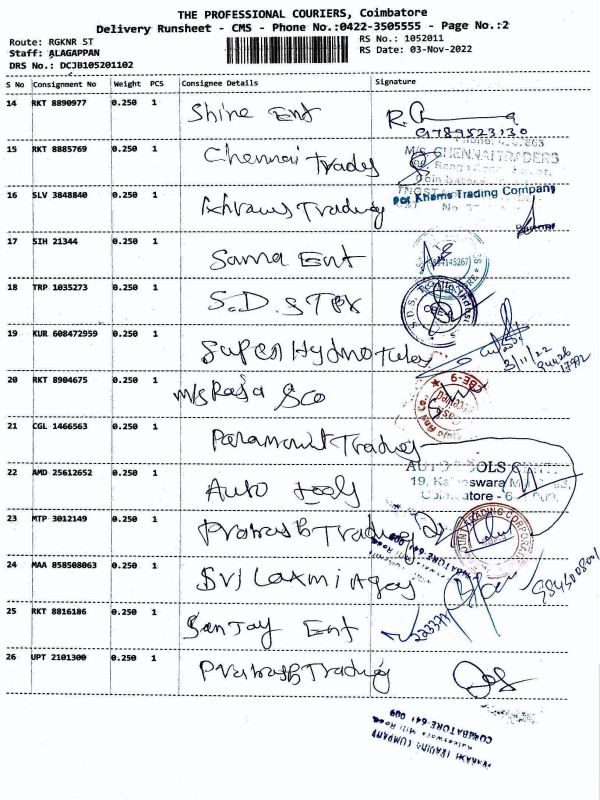 THE PROFESSIONAL COURIERS, Coimbatore
Delivery Runsheet - CMS - Phone No.:0422-3505555 - Page No.:2
Route: RGKNR ST
RS No.: 1052011
Staff: ALAGAPPAN
RS Date: 03-Nov-2022
DRS No.: DCJB105201102
S No Consignment No Weight PCS Consignee Details Signature
14 RKT 8890977 0.250 1 Shine Ent
9789523130
15 RKT 8885769 0.250 1 Chennai Trades
M/S. CHENNAI TRADERS
16 SLV 3848840 0.250 1 Trading
For Khems Trading Company
17 SIH 21344 0.250 1 Sama Ent
18 TRP 1035273 0.250 1 S.D.S
19 KUR 608472959 0.250 1 Super Hydro Tules
3/11/22
20 RKT 8904675 0.250 1 M/s Raja &co
CBE-9
21 CGL 1466563 0.250 1 Paramount Trading
AUTO TOOLS
22 AMD 25612652 0.250 1 Auto tools
19, Kaleeswara
Coimbatore - 641 009.
23 MTP 3012149 0.250 1 Trading
TRADING CORPORA
COIMBATORE 641 009
24 MAA 858508063 0.250 1 Sri Laxmi Agcy
25 RKT 8816186 0.250 1 Sanjay Ent
26 UPT 2101300 0.250 1 Trading
COIMBATORE 641 009
Kaleeswara Mill Road
TRADING COMPANY